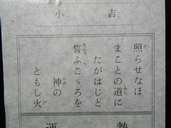 小吉
照らせなほ
まことの道に
たがはじと
誓ふこゝろを
神の
ともし火
運勢